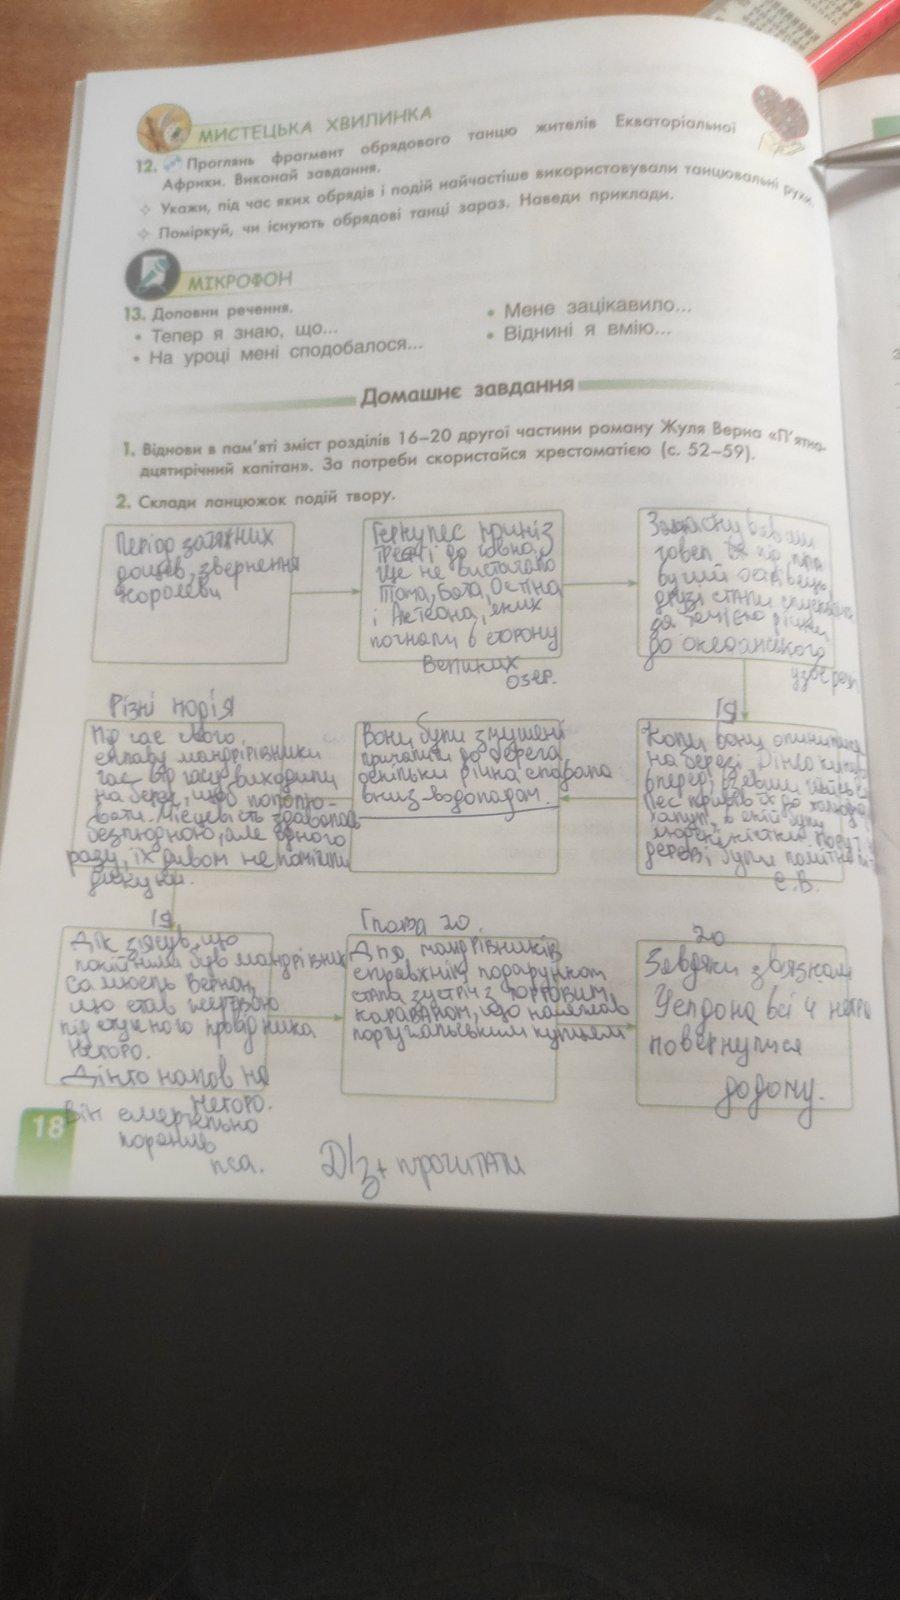 МИСТЕЦЬКА ХВИЛИНКА
12. Проглянь фрагмент обрядового танцю жителів Екваторіальної
Африки. Виконай завдання.
Укажи, під час яких обрядів і подій найчастіше використовували танцювальні рухи.
Поміркуй, чи існують обрядові танці зараз. Наведи приклади.
МІКРОФОН
13. Доповни речення.
• Тепер я знаю, що...
• На уроці мені сподобалося...
• Мене зацікавило...
• Віднині я вмію...
Домашнє завдання
1. Віднови в пам'яті зміст розділів 16–20 другої частини роману Жуля Верна «П'ятна-
дцятирічний капітан». За потреби скористайся хрестоматією (с. 52–59).
2. Склади ланцюжок подій твору.
Період затяжних
дощів, звернення
королеви
Геркулес приніз
до човна,
Ще не вистачало
Тома, Бата, Остіна
і Актеона, яких
погнали в сторону
Великих
озер.
човен під
друзі стали
за течією річки
до океанського
узбереж
19
Коли вони опинились
на березі, Дінго
вперед,
Пес привів їх до
в якій були
людські кістки
дереві були помітні
С.В.
Вони були змушені
причалити до берега
оскільки річка спадала
вниз водопадом.
Різні
Під час свого
сплаву мандрівники
час від часу виходили
на берег, щоб полопо-
вати. Місцевість здавалась
безлюдною, але одного
разу, їх дивом не помітили
дикуни.
19
Дік з'ясув, що
покійним був мандрівник
Самюель Вернон,
що став жертвою
підступного провідника
Негоро.
Дінго напов на
Негоро.
Він смертельно
поранив
пса.
Глава 20.
Для мандрівників
справжнім подарунком
стала зустріч з торговим
караваном, що належав
португальським купцям
20
Завдяки зв'язкам
Уелдона всі 4 негра
повернулися
додому.
18
Д/з + прочитати